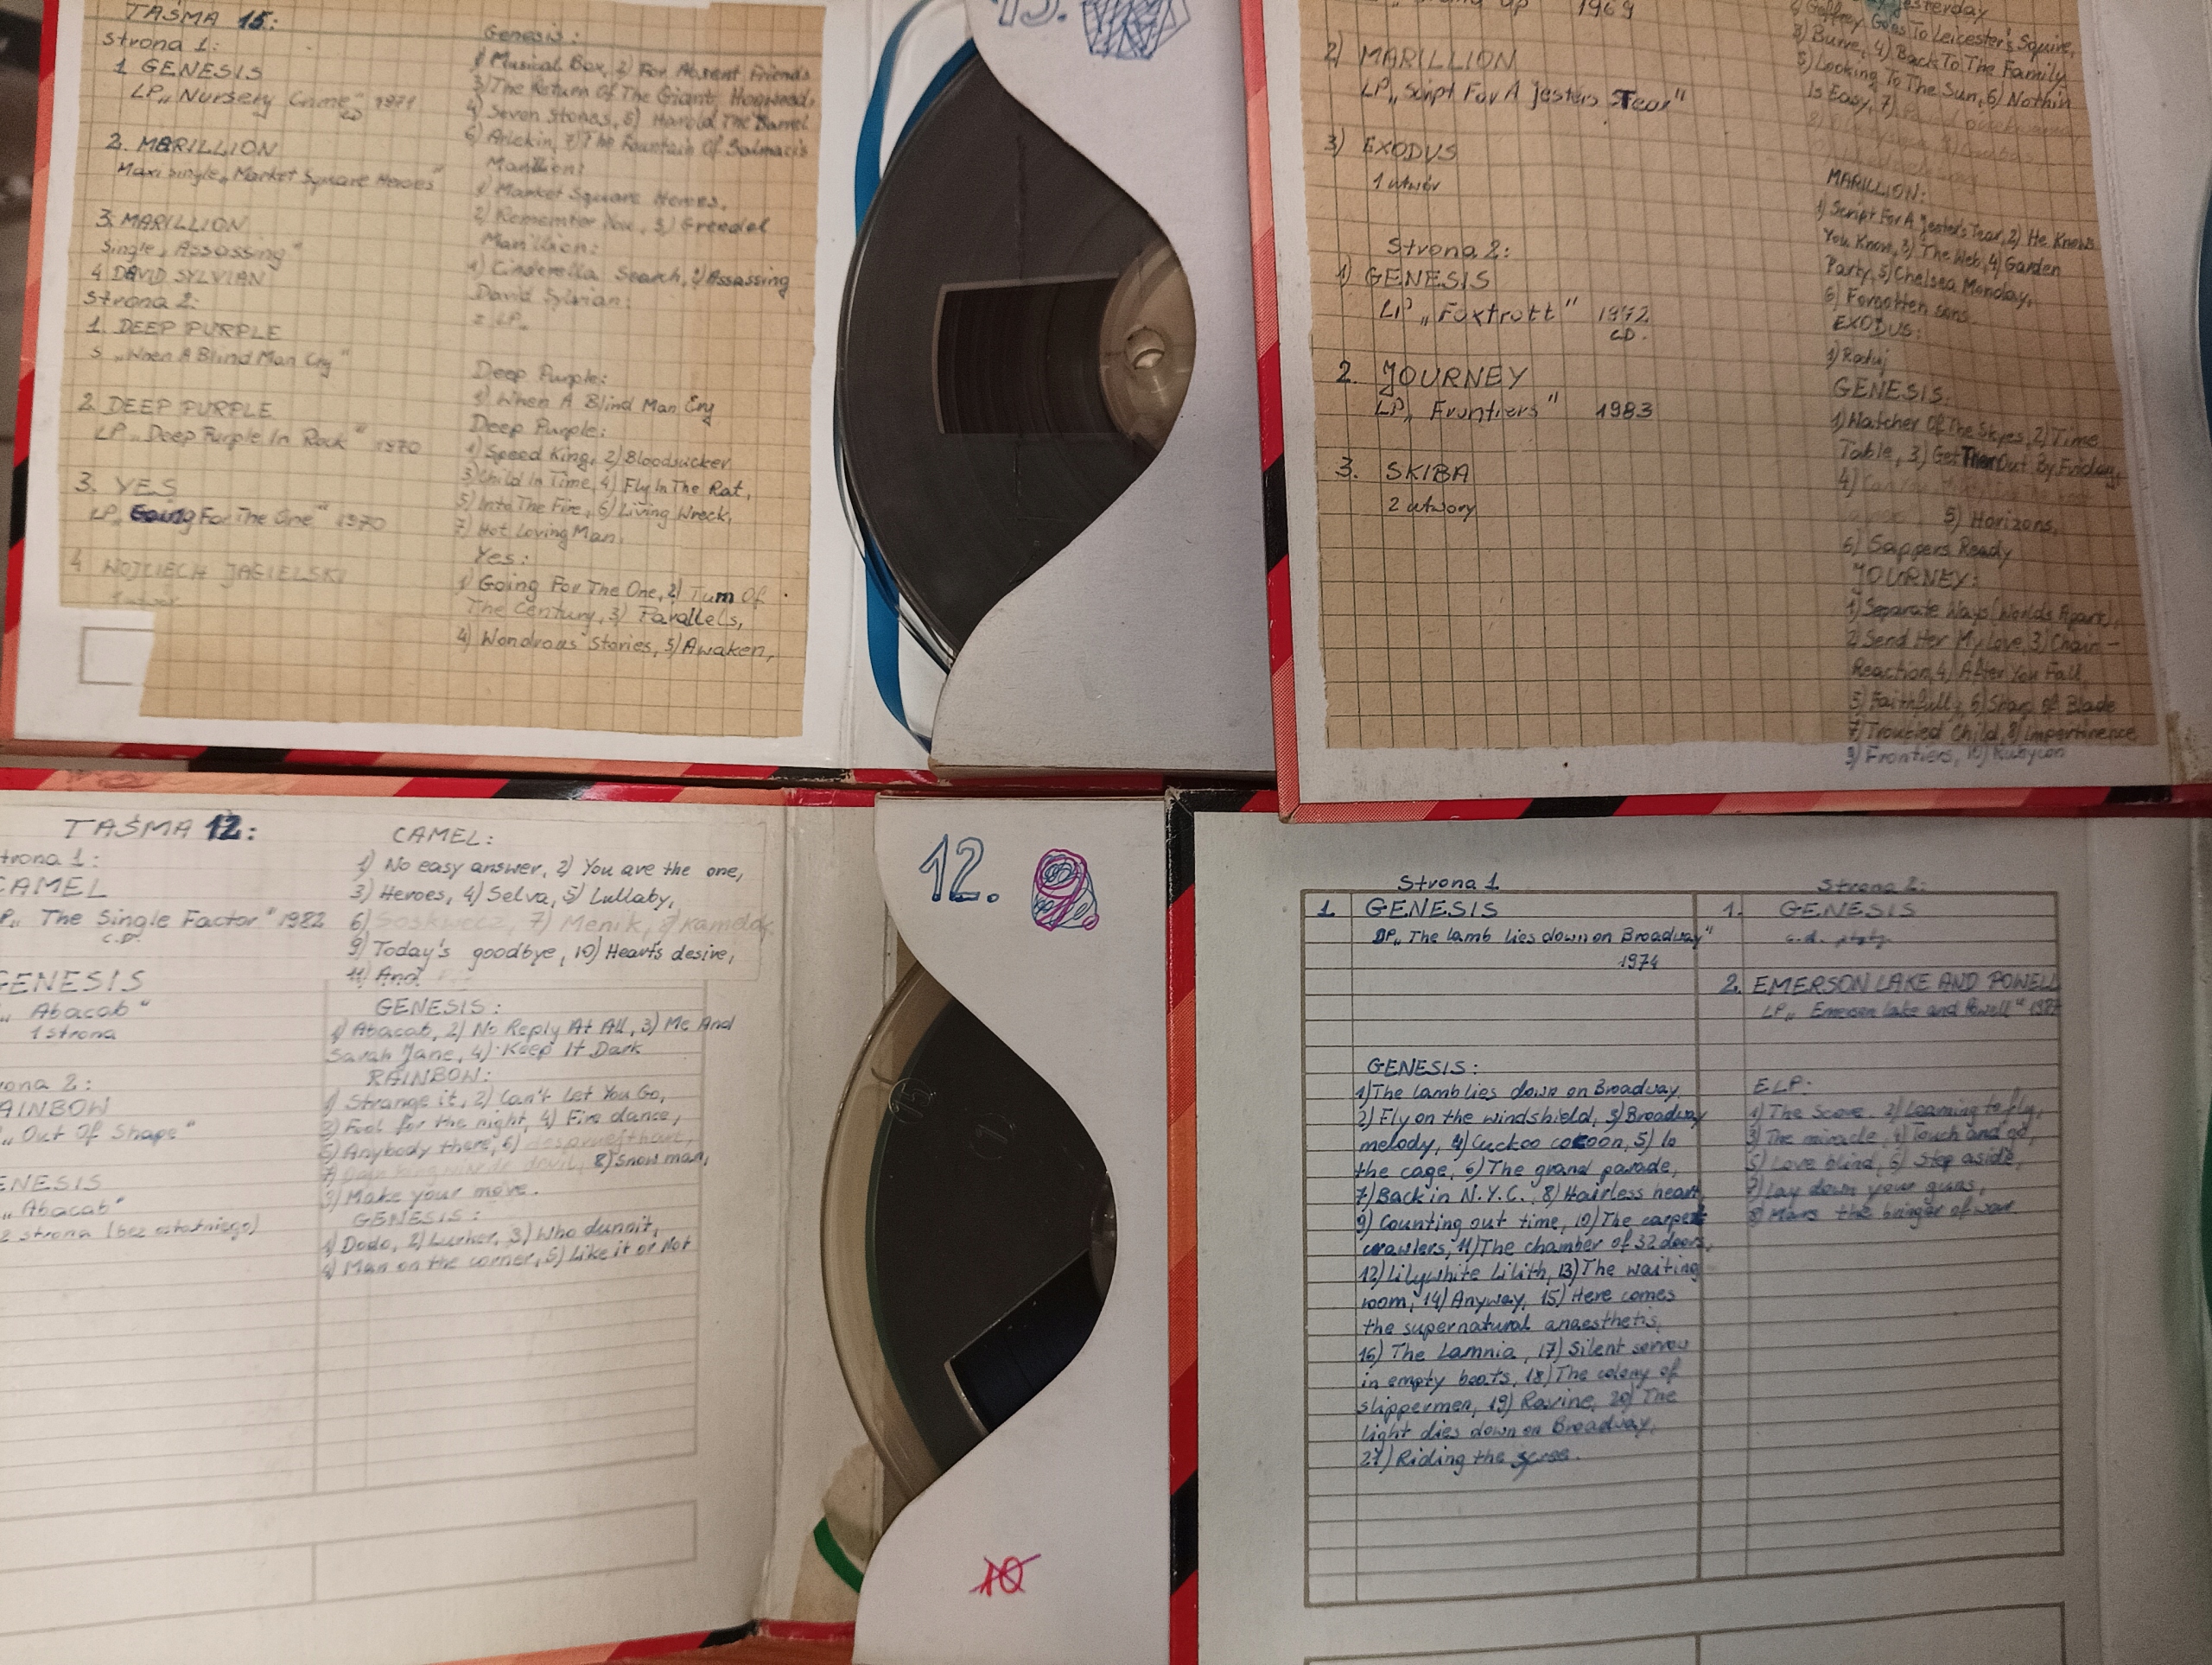 TAŚMA 15:
Strona 1:
1 GENESIS
LP „Nursery Crime" 1971
CD
2. MARILLION
Maxi Single „Market Square Heroes"
3. MARILLION
Single „Assassing"
4 DAVID SYLVIAN
Strona 2:
1. DEEP PURPLE
S „When A Blind Man Cry"
2. DEEP PURPLE
LP „Deep Purple In Rock" 1970
3. YES
LP „Going For The One" 1970
4 WOJCIECH JAGIELSKI
Genesis:
1) Musical Box, 2) For Absent Friends
3) The Return Of The Giant Hogweed,
4) Seven Stones, 5) Harold The Barrel
6) Arlekin, 7) The Fountain Of Salmacis
Marillion:
1) Market Square Heroes,
2) Remember You, 3) Grendel
Marillion:
1) Cinderella Search, 2) Assassing
David Sylvian:
z LP„
Deep Purple:
1) When A Blind Man Cry
Deep Purple:
1) Speed King, 2) Bloodsucker
3) Child In Time, 4) Fly In The Rat,
5) Into The Fire, 6) Living Wreck,
7) Hot Loving Man.
Yes:
1) Going For The One, 2) Turn Of
The Century, 3) Parallels,
4) Wondrous Stories, 5) Awaken,
15.
Up" 1969
2) MARILLION
LP „Script For A Jesters Tear"
3) EXODUS
1 utwór
Strona 2:
1) GENESIS
LP „Foxtrott" 1972
CD.
2. JOURNEY
LP „Fruntiers" 1983
3. SKIBA
2 utwory
Yesterday
2) Goffrey Goes To Leicester's Squire,
3) Burre, 4) Back To The Family
5) Looking To The Sun, 6) Nothin
Is Easy, 7)
MARILLION:
1) Script For A Jester's Tear, 2) He Knows
You Know, 3) The Web, 4) Garden
Party, 5) Chelsea Monday,
6) Forgotten sons.
EXODUS:
1) Raduj
GENESIS:
1) Watcher Of The Skyes, 2) Time
Table, 3) Get Ther Out By Friday,
4)
5) Horizons,
6) Sappers Ready
JOURNEY:
1) Separate Ways (Worlds Apart),
2) Send Her My Love, 3) Chain-
Reaction, 4) After You Fall,
5) Faithfull, 6) Stag of Blade
7) Troubled Child, 8) Impertinence
9) Frontiers, 10) Rubycon
TAŚMA 12:
trona 1:
CAMEL
P„ The Single Factor" 1982
C.D.
GENESIS
„ Abacab"
1 strona
ona 2:
AINBOW
„Out Of Shape"
ENESIS
„ Abacab"
2 strona (bez ostatniego)
CAMEL:
1) No easy answer, 2) You are the one,
3) Heroes, 4) Selva, 5) Lullaby,
6) 7) Menik, 8)
9) Today's goodbye, 10) Heart's desire,
11) And
GENESIS:
1) Abacab, 2) No Reply At All, 3) Me And
Sarah Jane, 4) Keep It Dark
RAINBOW:
1) Strange it, 2) Can't Let You Go,
3) Fool for the night, 4) Fire dance,
5) Anybody there, 6)
7) 8) Snow man,
9) Make your move.
GENESIS:
1) Dodo, 2) Lurker, 3) Who dunnit,
4) Man on the corner, 5) Like it or Not
12.
10
Strona 1
1. GENESIS
DP„ The lamb lies down on Broadway"
1974
GENESIS:
1) The lamb lies down on Broadway
2) Fly on the windshield, 3) Broadway
melody, 4) Cuckoo cocoon, 5) In
the cage, 6) The grand parade,
7) Back in N.Y.C., 8) Hairless heart,
9) Counting out time, 10) The carpet
crawlers, 11) The chamber of 32 doors,
12) Lilywhite Lilith, 13) The waiting
room, 14) Anyway, 15) Here comes
the supernatural anaesthetis,
16) The Lamnia, 17) Silent sorrow
in empty boats, 18) The colony of
slippermen, 19) Ravine, 20) The
light dies down on Broadway,
21) Riding the scree.
Strona 2:
1. GENESIS
c.d. płyty
2. EMERSON LAKE AND POWELL
LP„ Emerson lake and Powell" 1987
ELP:
1) The Score, 2) Learning to fly,
3) The miracle, 4) Touch and go,
5) Love blind, 6) Step aside,
7) Lay down your guns,
8) Mars the bringer of war.